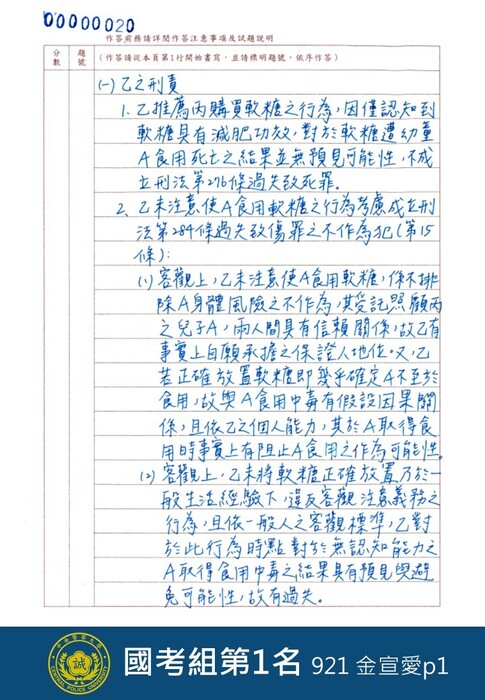 00000020
作答前務請詳閱作答注意事項及試題說明
分數
題號
(作答請從本頁第1行開始書寫,並請標明題號,依序作答)
(一)乙之刑責
1. 乙推薦丙購買軟糖之行為,因僅認知到
軟糖具有減肥功效,對於軟糖遭幼童
A食用死亡之結果並無預見可能性,不成
立刑法第276條過失致死罪。
2. 乙未注意使A食用軟糖之行為考慮成立刑
法第284條過失致傷罪之不作為犯(第15
條):
(1) 客觀上,乙未注意使A食用軟糖,係不排
除A身體風險之不作為,其受託照顧丙
之兒子A,兩人間具有信賴關係,故乙有
事實上自願承擔之保證人地位。又,乙
若正確放置軟糖即幾乎確定A不至於
食用,故與A食用中毒有假設因果關
係,且依乙之個人能力,其於A取得食
用時事實上有阻止A食用之作為可能性。
(2) 客觀上,乙未將軟糖正確放置乃於一
般生活經驗下,違反客觀注意義務之
行為,且依一般人之客觀標準,乙對
於此行為時點對於無認知能力之
A取得食用中毒之結果具有預見與避
免可能性,故有過失。
誠
CENTRAL POLICE UNIVERSITY
國考組第1名 921 金宣愛p1